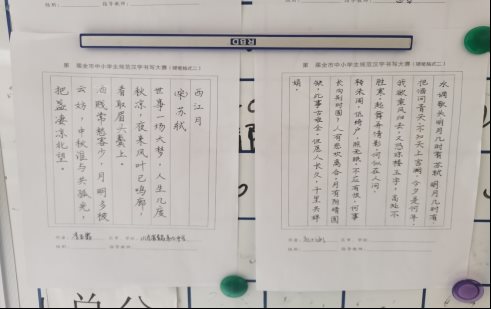 指导教师：
RBD
第 届全市中小学生规范汉字书写大赛（硬笔格式二）
西江月
宋苏轼
世事一场大梦，人生几度
秋凉，夜来风叶已鸣廊，
看取眉头鬓上。
酒贱常愁客少，月明多被
云妨，中秋谁与共孤光，
把盏凄凉北望。
作者：
学校：
组别：
指导教师：
第 届全市中小学生规范汉字书写大赛（硬笔格式二）
水调歌头明月几时有苏轼 明月几时有，
把酒问青天。不知天上宫阙，今夕是何年。
我欲乘风归去，又恐琼楼玉宇，高处不
胜寒。起舞弄清影，何似在人间。
转朱阁，低绮户，照无眠。不应有恨，何事
长向别时圆？人有悲欢离合，月有阴晴圆
缺，此事古难全。但愿人长久，千里共婵
娟。
作者：
学校：
组别：
指导教师：